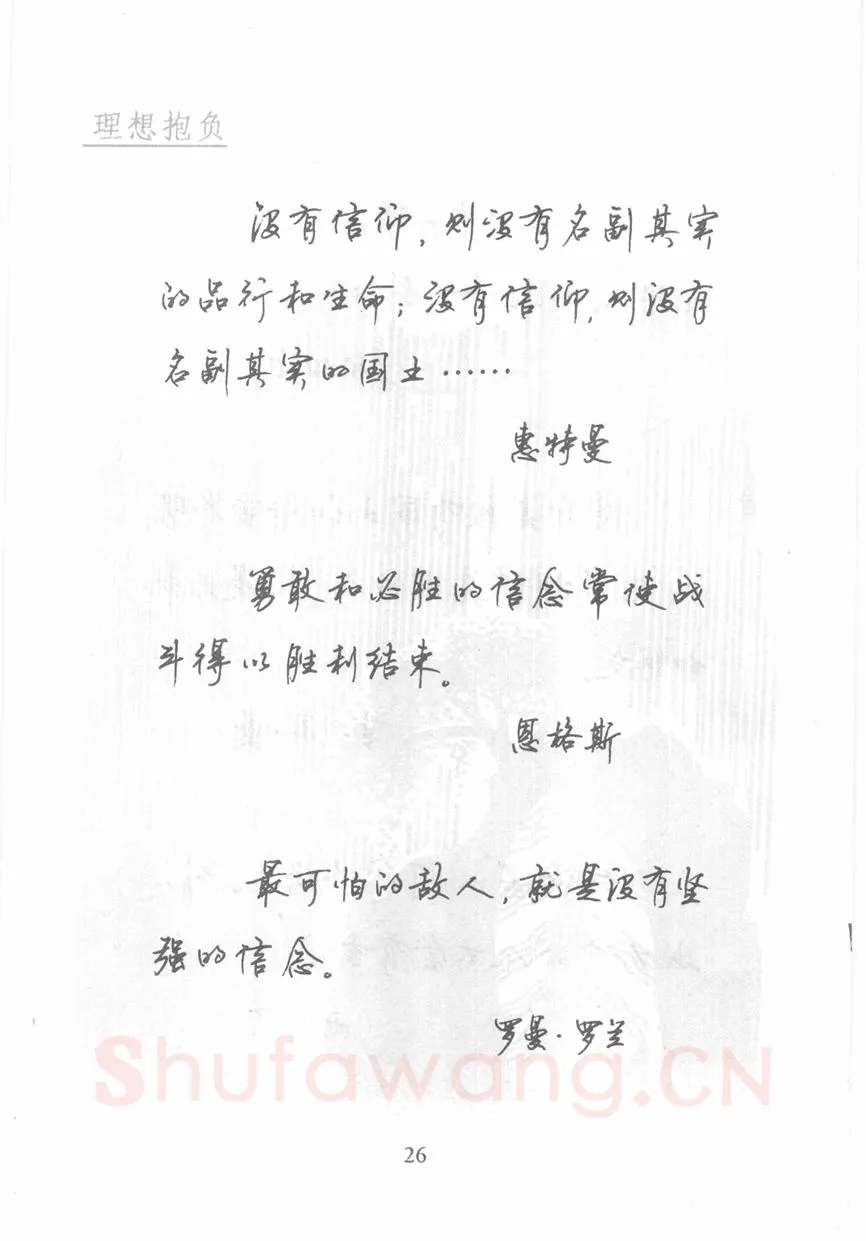 理想抱负
没有信仰，则没有名副其实
的品行和生命；没有信仰，则没有
名副其实的国土……
惠特曼
勇敢和必胜的信念常使战
斗得以胜利结束。
恩格斯
最可怕的敌人，就是没有坚
强的信念。
罗曼·罗兰
Shufawang.CN
26